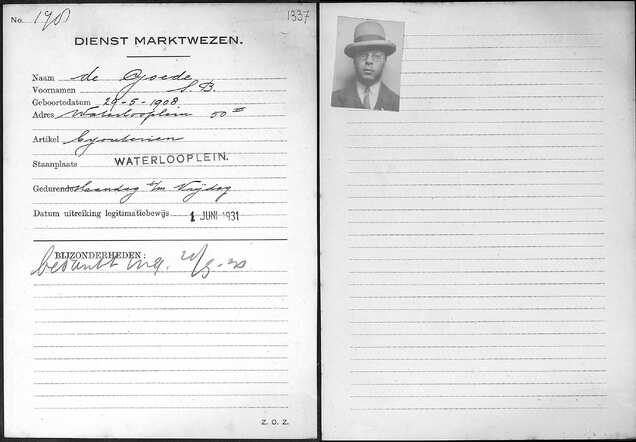 No. 198 1337
DIENST MARKTWEZEN.
Naam de Goede
Voornamen S. B.
Geboortedatum 29-5-1908
Adres Waterlooplein 50 II
Artikel Byouterien
Staanplaats WATERLOOPLEIN.
Gedurende Maandag t/m Vrijdag
Datum uitreiking legitimatiebewijs 1 JUNI 1931
BIJZONDERHEDEN:
bedankt
Z. O. Z.